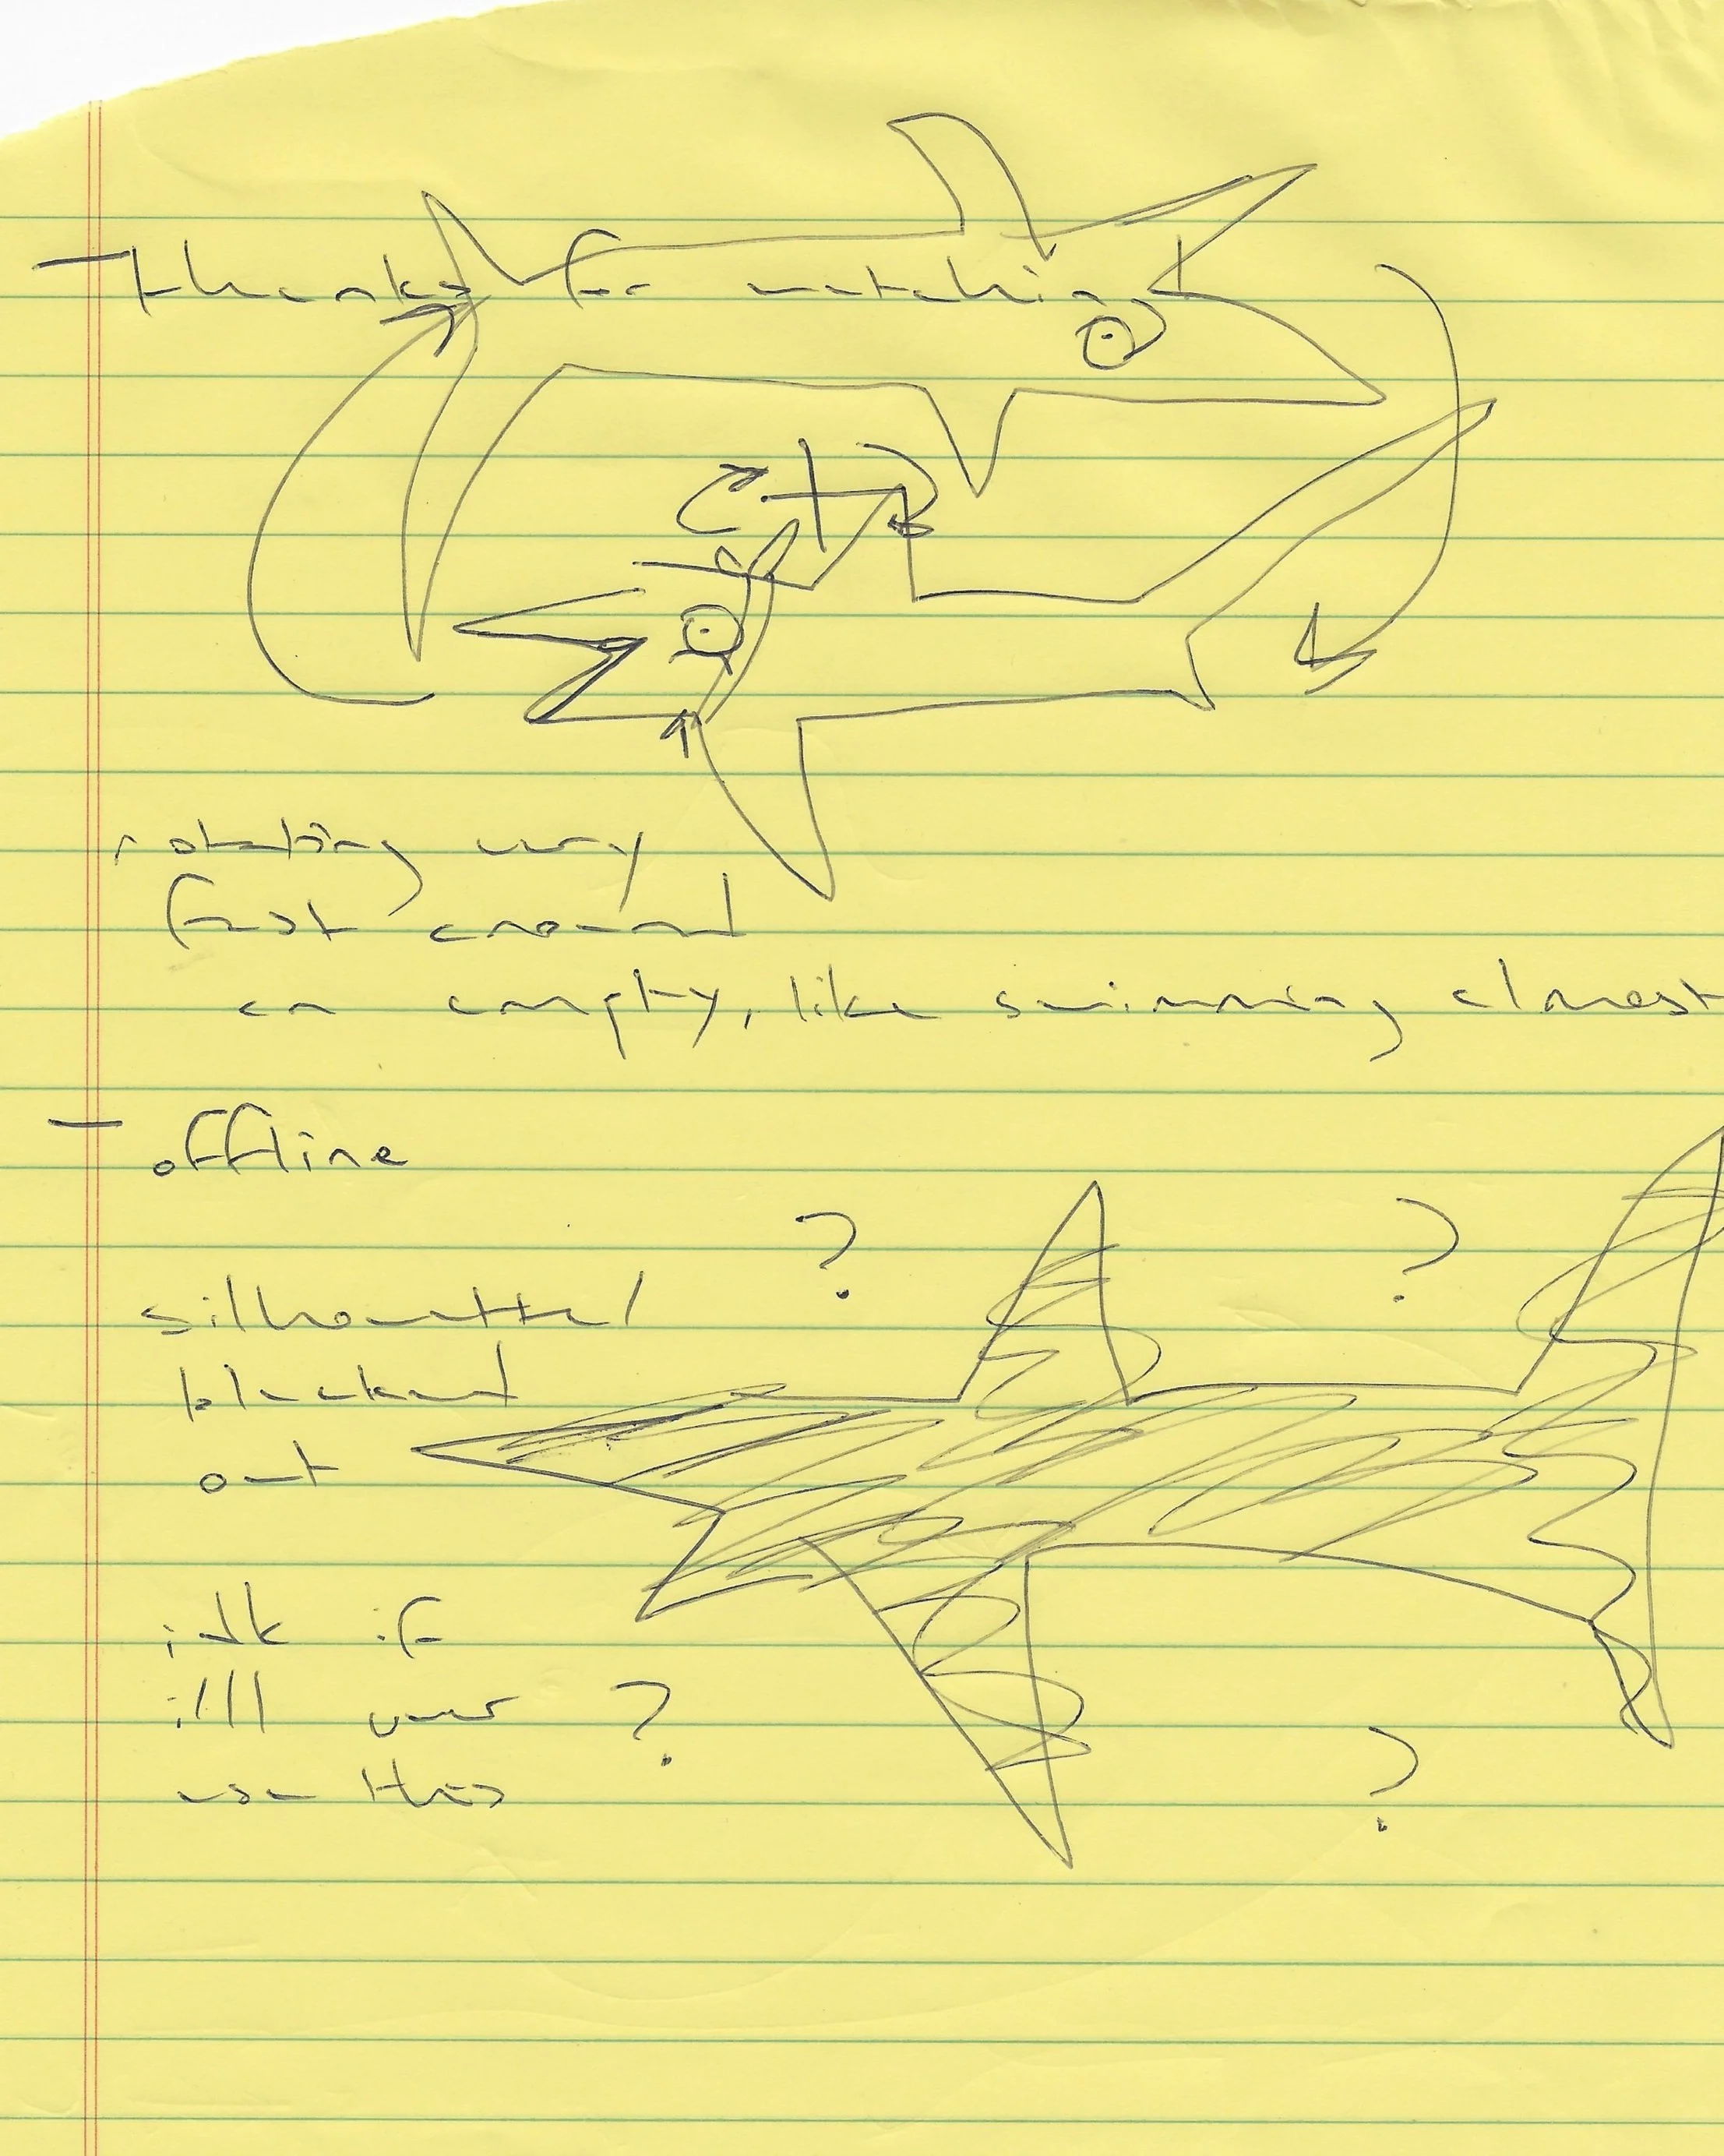 - thanks for watching
rotating very
fast around
an empty, like swimming almost
- offline
? ?
silhouette/
blacked
out
idk if
i'll ever ?
use this
?